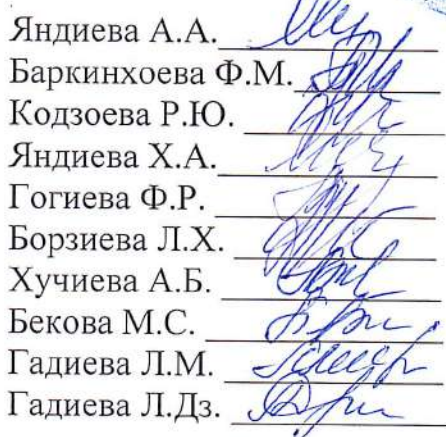 Яндиева А.А.
Баркинхоева Ф.М.
Кодзоева Р.Ю.
Яндиева Х.А.
Гогиева Ф.Р.
Борзиева Л.Х.
Хучиева А.Б.
Бекова М.С.
Гадиева Л.М.
Гадиева Л.Дз.